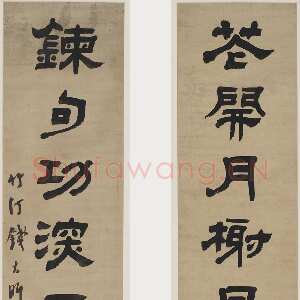 花開月榭
鍊句功深
竹汀錢大昕
Shufawang.CN